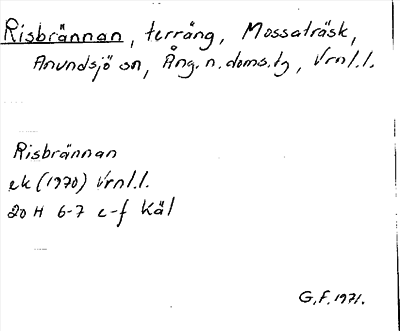 Risbrännan, terräng, Mossaträsk,
Anundsjö sn, Ång. n. doms. tg, Vrnl.l.
Risbrännan
ek (1970) Vrnl.l.
20 H 6-7 e-f Käl
G.F. 1971.